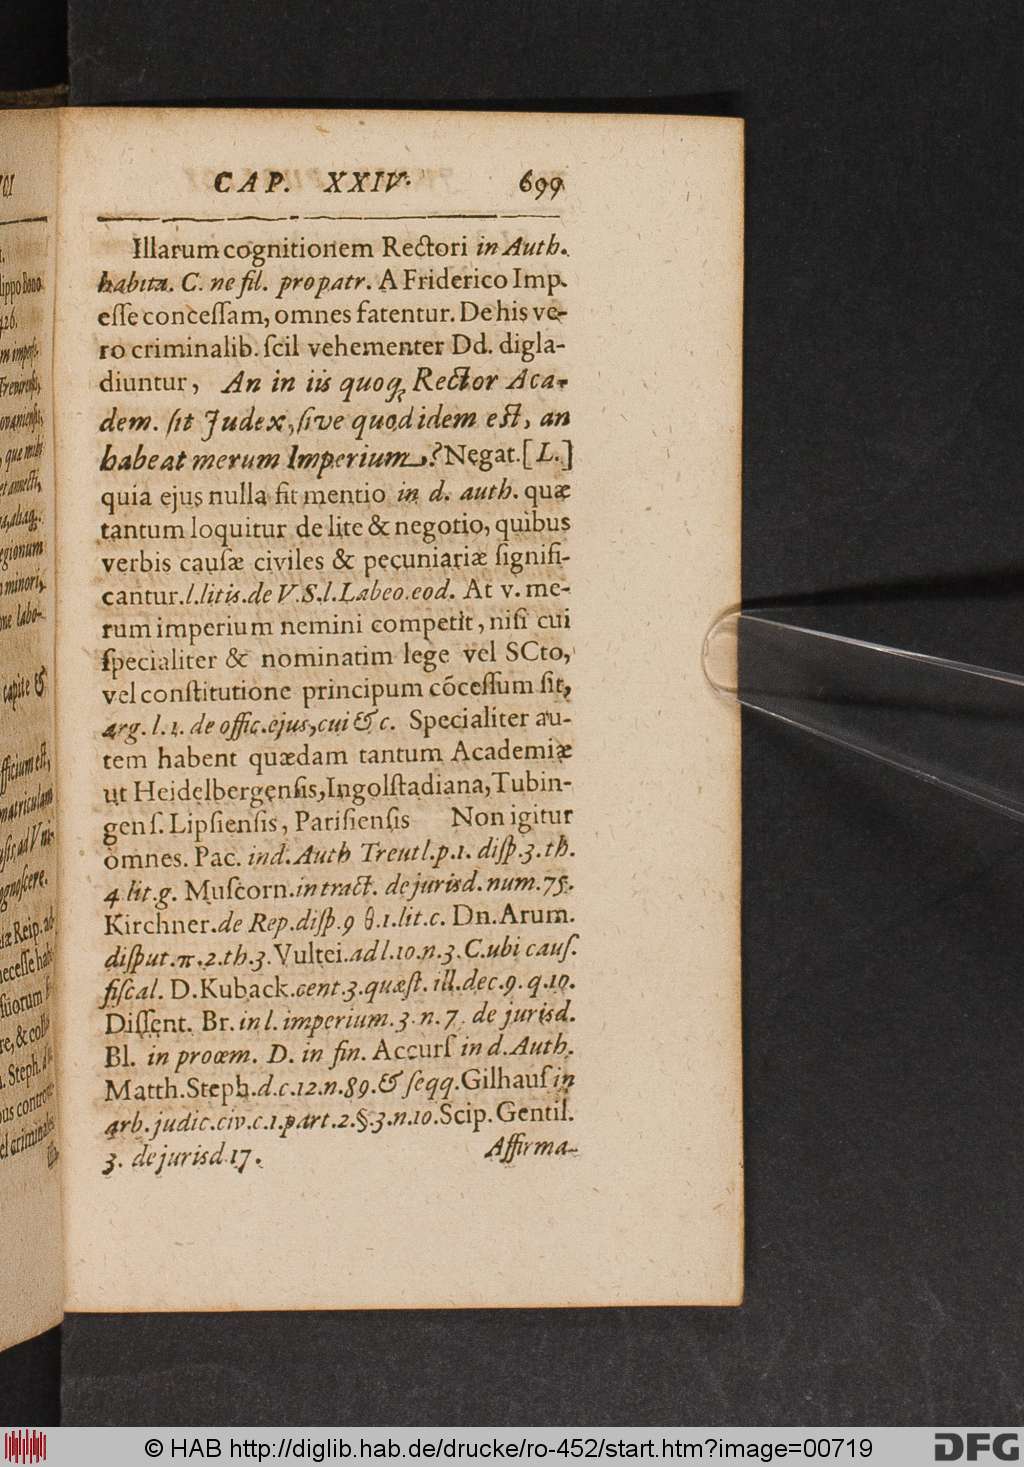 CAP. XXIV. 699
Illarum cognitionem Rectori in Auth.
habita. C. ne fil. pro patr. A Friderico Imp.
eſſe conceſſam, omnes fatentur. De his ve-
ro criminalib. ſcil vehementer Dd. digla-
diuntur, An in iis quoq; Rector Aca-
dem. ſit Judex, ſive quod idem eſt, an
habeat merum Imperium? Negat. [L.]
quia ejus nulla fit mentio in d. auth. quæ
tantum loquitur de lite & negotio, quibus
verbis cauſæ civiles & pecuniariæ ſignifi-
cantur. l. litis. de V. S. l. Labeo. eod. At v. me-
rum imperium nemini competit, niſi cui
ſpecialiter & nominatim lege vel SCto,
vel conſtitutione principum cõceſſum ſit,
arg. l. 1. de offic. ejus, cui & c. Specialiter au-
tem habent quædam tantum Academiæ
ut Heidelbergenſis, Ingolſtadiana, Tubin-
genſ. Lipſienſis, Pariſienſis Non igitur
omnes. Pac. ind. Auth Treutl. p. 1. diſp. 3. th.
4 lit. g. Muſcorn. in tract. de jurisd. num. 75.
Kirchner. de Rep. diſp. 9 θ. 1. lit. c. Dn. Arum.
diſput. π. 2. th. 3. Vultei. ad l. 10. n. 3. C. ubi cauſ.
fiſcal. D. Kuback. cent. 3. quæſt. ill. dec. 9. q. 10.
Diſſent. Br. in l. imperium. 3. n. 7. de jurisd.
Bl. in proœm. D. in fin. Accurſ in d. Auth.
Matth. Steph. d. c. 12. n. 89. & ſeqq. Gilhauſ in
arb. judic. civ. c. 1. part. 2. §. 3. n. 10. Scip. Gentil.
3. de jurisd. 17.
Affirma-
© HAB http://diglib.hab.de/drucke/ro-452/start.htm?image=00719
DFG